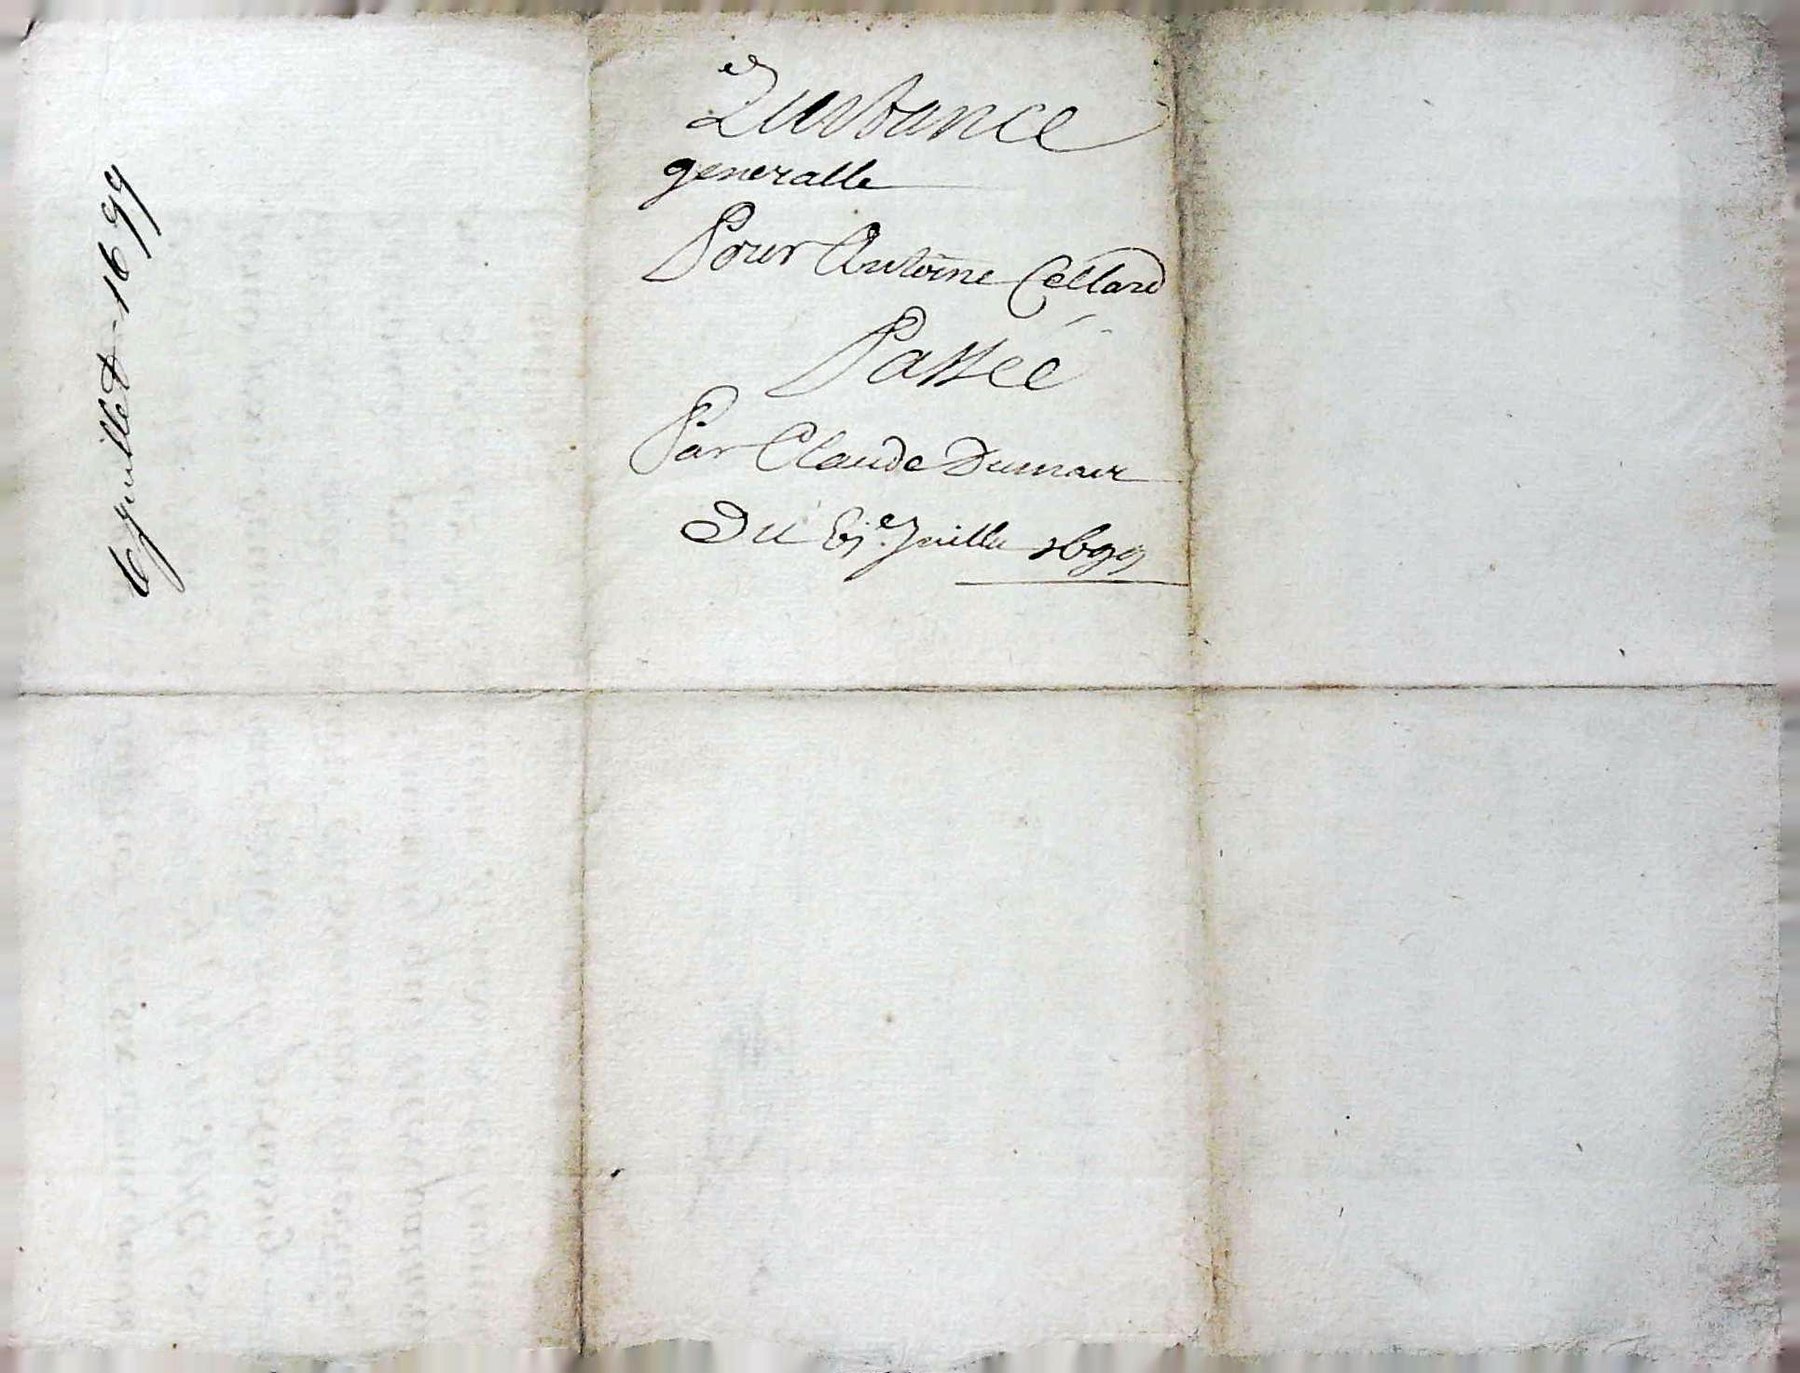 6 juillet 1699
Quittance
generalle
Pour Antoine Cellard
Passée
Par Claude Dumair
Du 6.e Juillet 1699